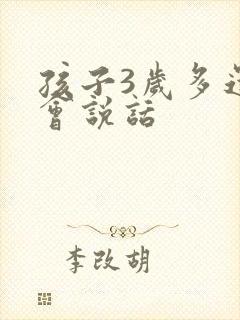 孩子3歲多還
會說話
李改胡